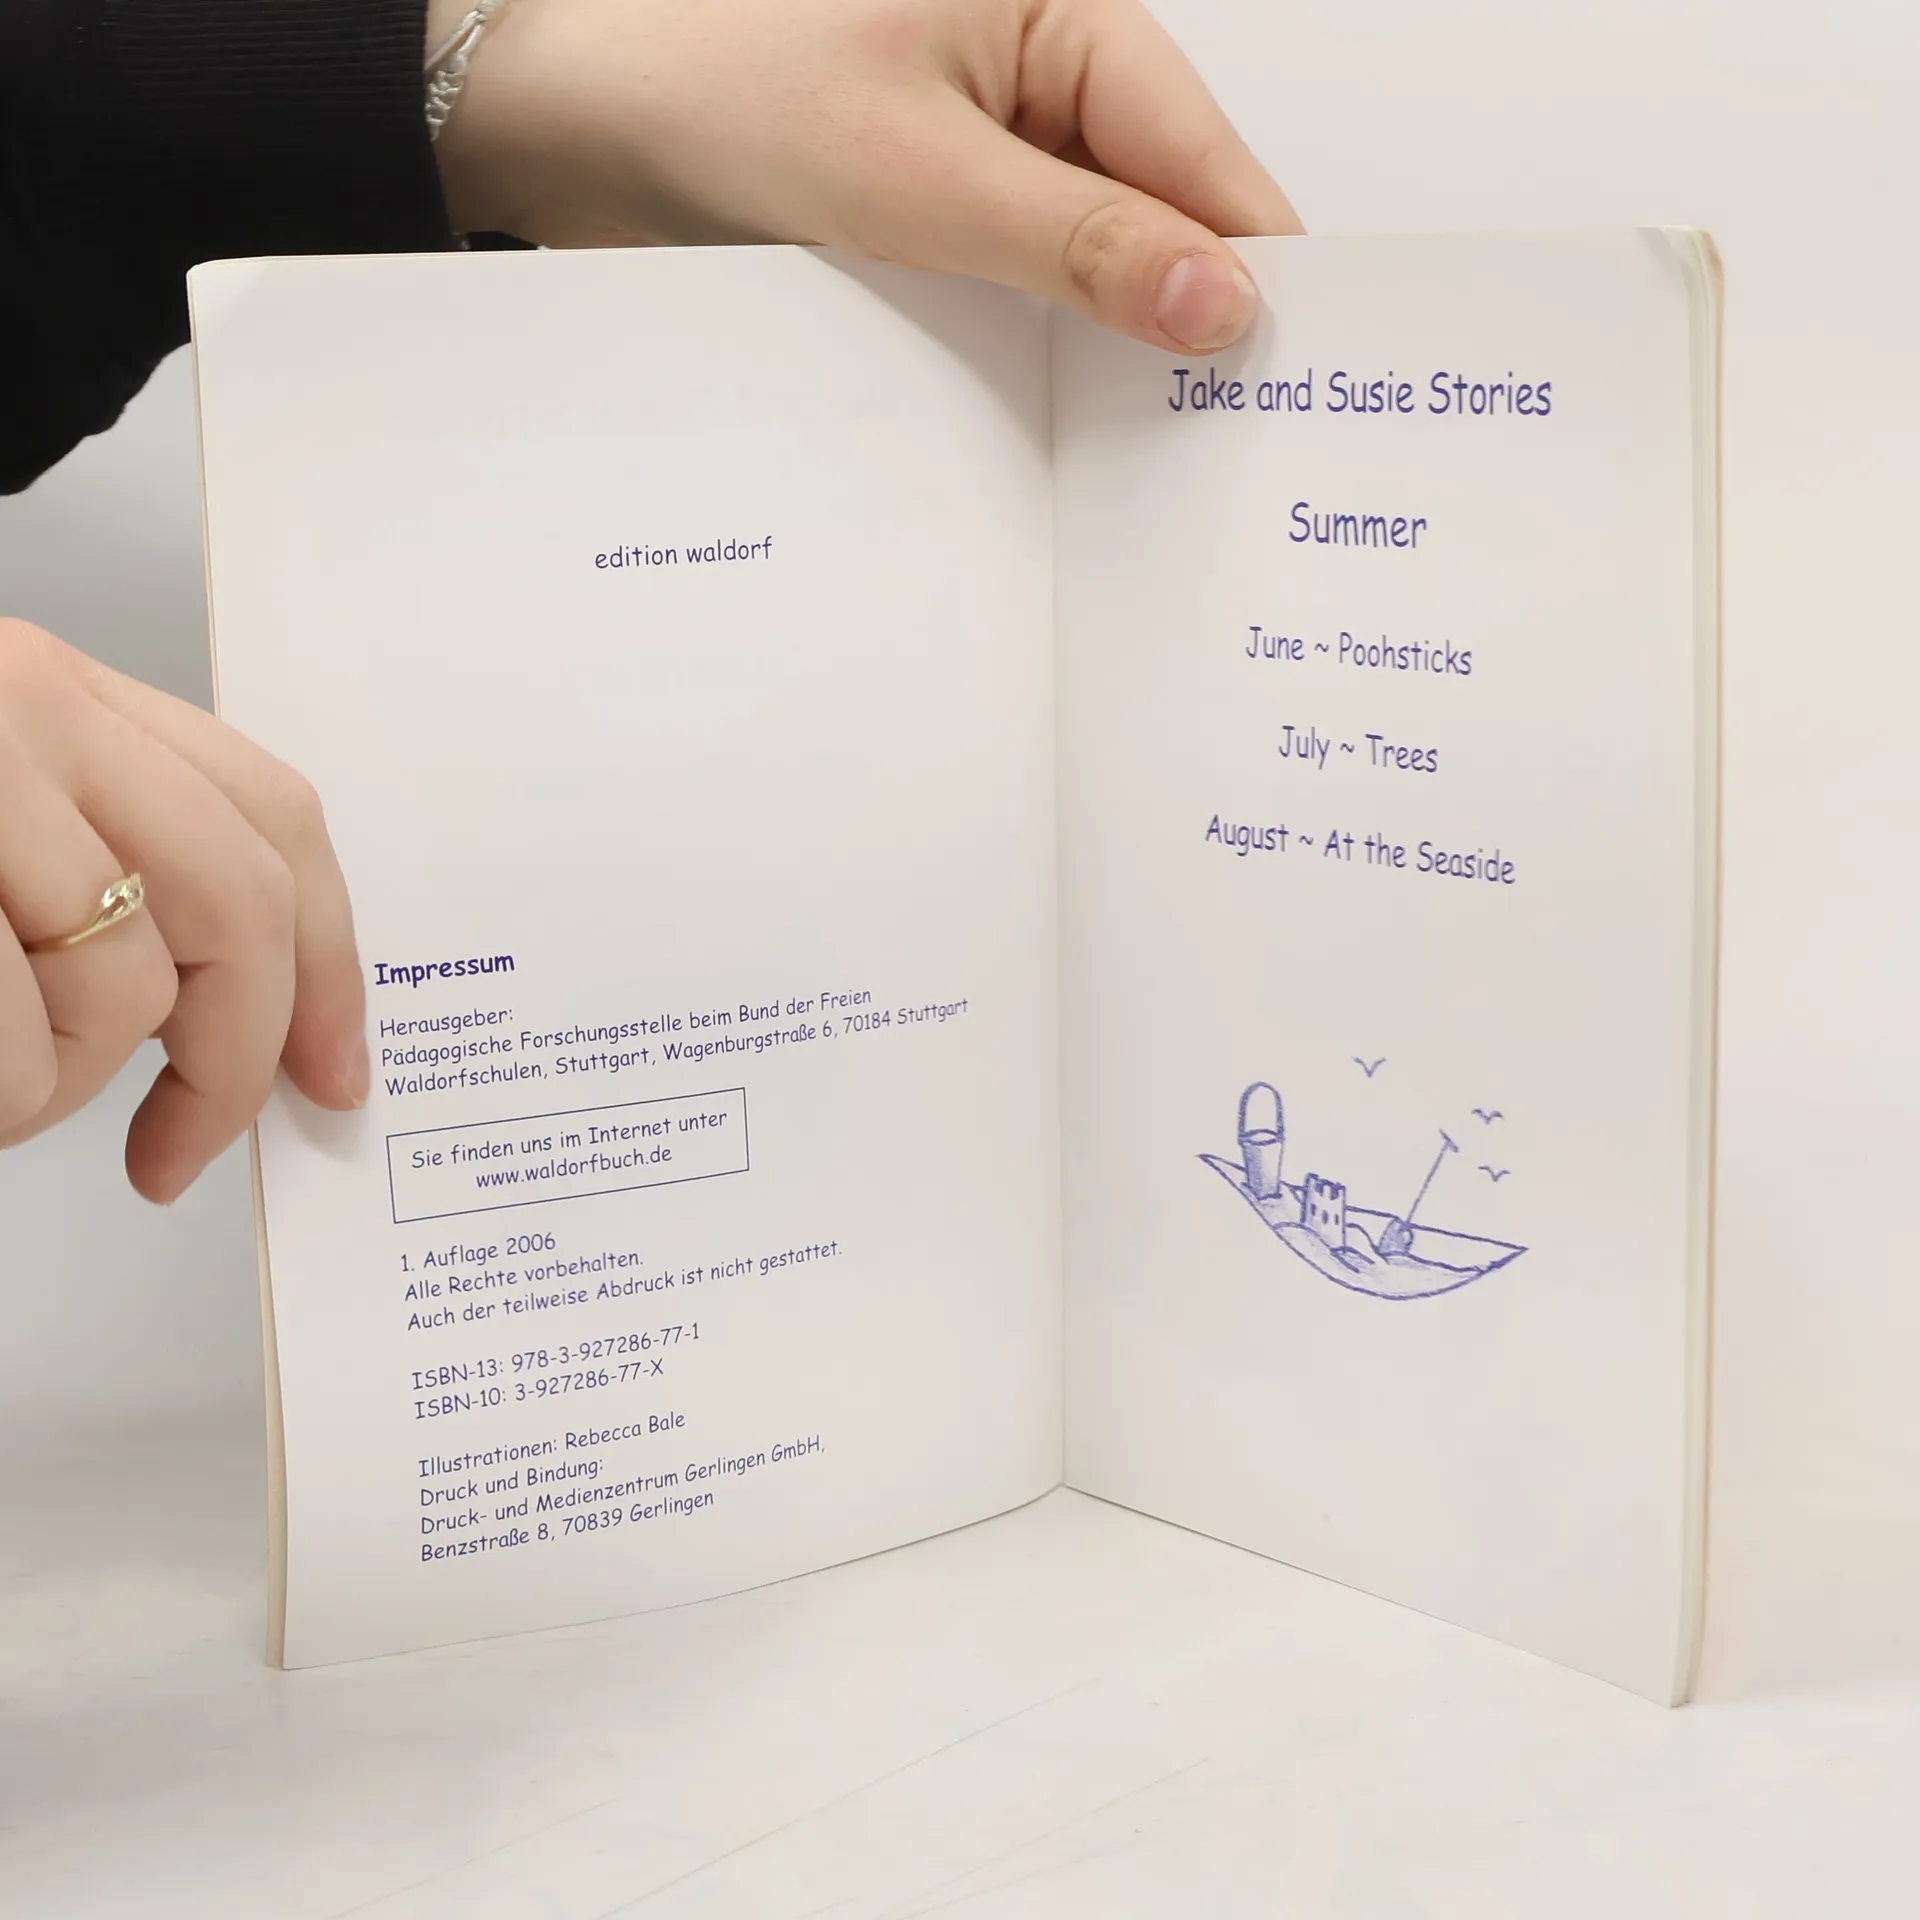 edition waldorf
Impressum
Herausgeber:
Pädagogische Forschungsstelle beim Bund der Freien
Waldorfschulen, Stuttgart, Wagenburgstraße 6, 70184 Stuttgart
Sie finden uns im Internet unter
www.waldorfbuch.de
1. Auflage 2006
Alle Rechte vorbehalten.
Auch der teilweise Abdruck ist nicht gestattet.
ISBN-13: 978-3-927286-77-1
ISBN-10: 3-927286-77-X
Illustrationen: Rebecca Bale
Druck und Bindung:
Druck- und Medienzentrum Gerlingen GmbH,
Benzstraße 8, 70839 Gerlingen
Jake and Susie Stories
Summer
June ~ Poohsticks
July ~ Trees
August ~ At the Seaside